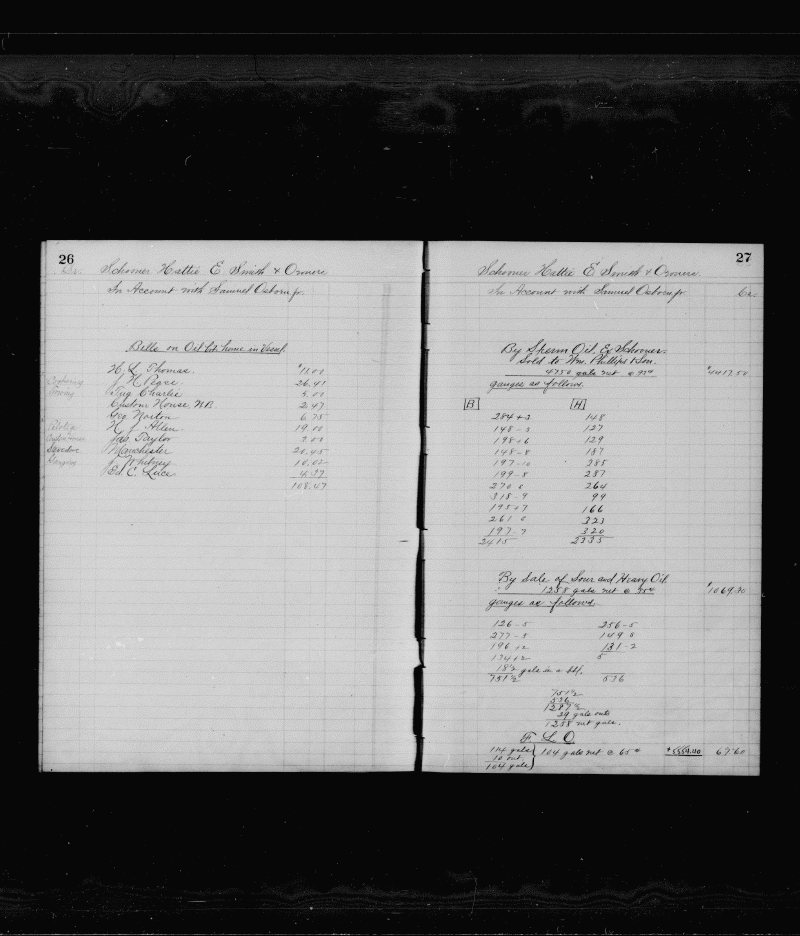 26
Cr. Schooner Hattie E Smith & Owners
In Account with Samuel Osborn Jr.
Bills on Oil bt. home in Vessel.
H. L. Thomas. $15.00
J. H. Pease 26.41
Towing Tug Charlie 5.00
Custom House N.B. 2.47
Geo Norton 6.75
H. J. Allen 19.00
Custom House Jas. Taylor
Manchester 20.45
J. Whitney 10.02
Ed. C. Luce 4.37
108.47
27
Schooner Hattie E Smith & Owners.
In Account with Samuel Osborn Jr Cr.
By Sperm Oil Ex Schooner.
Sold to Wm. Phillips & Son.
4750 gals net @ 93¢ $4417.50
gauges as follows.
B H
284+3 148
148-3 127
198+6 129
148-8 187
197-10 285
199-8 287
270 0 264
318-9 99
195+7 166
261 0 323
197-7 320
2415 2335
By Sale of Sour and Heavy Oil.
1258 gals net @ 85¢ $1069.30
gauges as follows.
126-5 256-5
277-5 149 0
196+2 131-2
134+2
18½ gals in a bbl.
751½ 536
751½
536
1287½
29 gals outs
1258 net gals.
F L O
114 gals
10 out
104 gals } 104 gals net @ 65¢ $5554.40 67.60